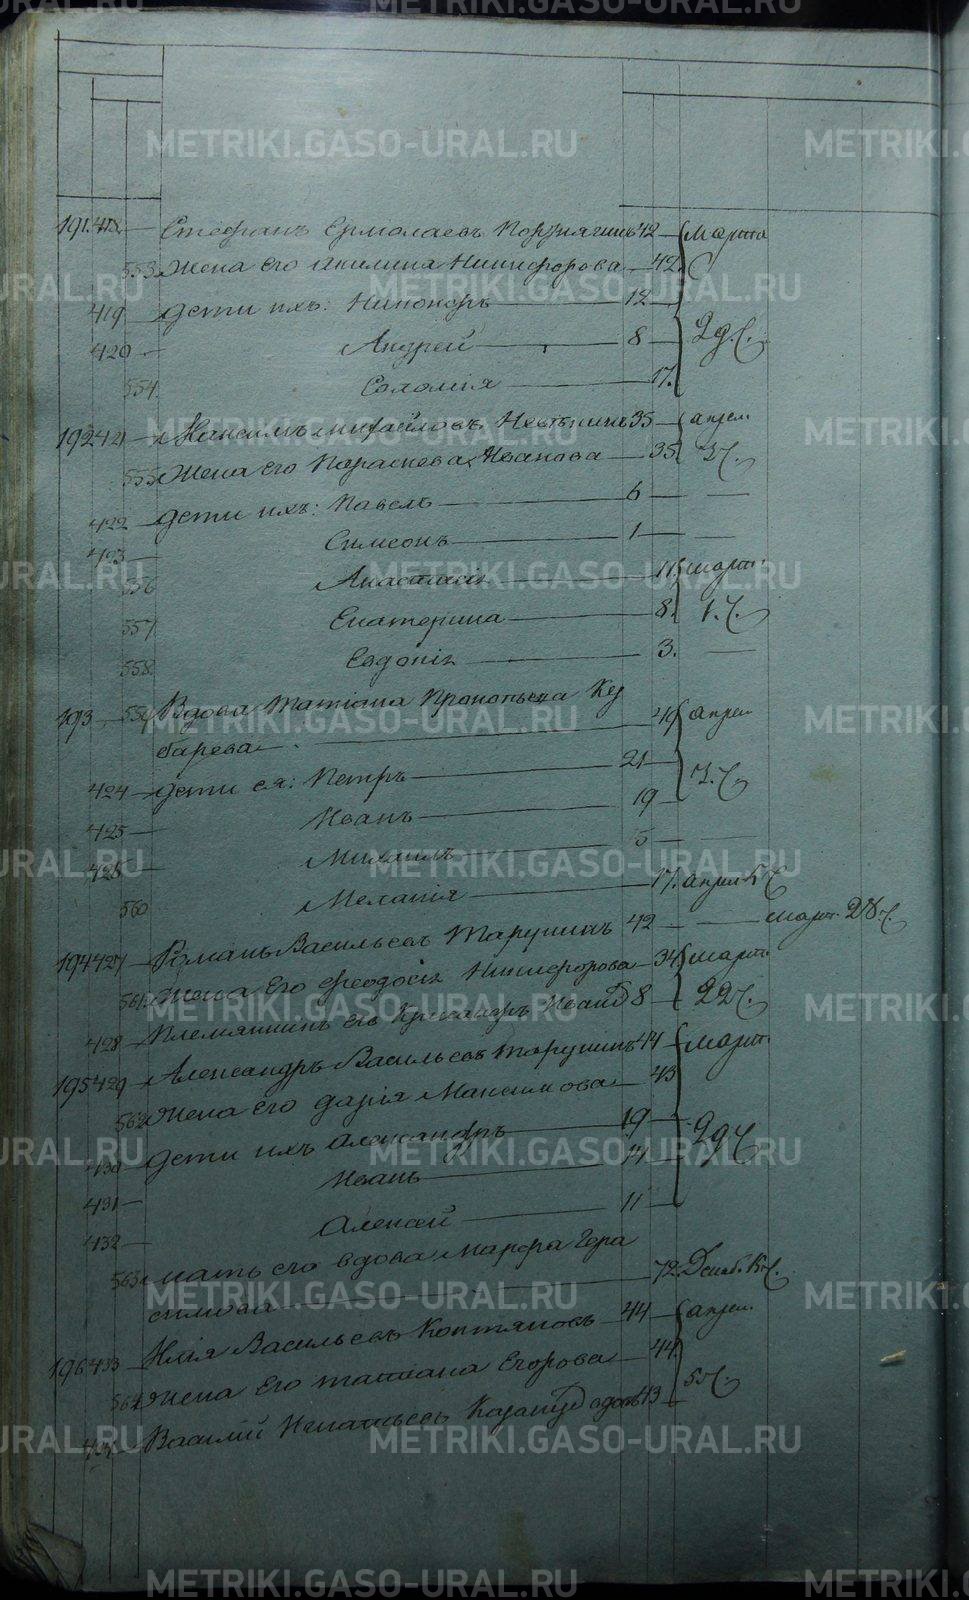 191. 418 Стефанъ Ермолаевъ 42 Марта
553 Жена его Акилина Никифорова 42
419 Дети ихъ: Никоноръ 12
420 Андрей 8 29.
554 Соломія 17.
192 421 Максимъ Михайловъ 35 апрел
555 Жена его Параскева Иванова 35 3
422 Дети ихъ: Павелъ 6
423 Симеонъ 1
556 Анастасія 11 март
557 Екатерина 8. 1.
558 Евдокія 3.
193 559 Вдова Татіана Прокопьева
барева 49 апрел
424 Дети ея: Петръ 21
425 Иванъ 19
426 Михаилъ 15
560 Меланія 17. апрел
194 427 Романъ Васильевъ Тарунинъ 42 март. 28
561 Жена Его Феодосія Никифорова 34 март
428 Племянникъ его 8 22
195 429 Александръ Васильевъ Тарунинъ 44 март
562 Жена его Дарія Максимова 43
430 Дети ихъ Александръ 19 29
431 Иванъ 14
432 Алексей 11
563 Мать его вдова Марфа Гера
симова 72 Декаб.
196 433 Илія Васильевъ 44 апрел
564 Жена Его Татіана Егорова 44 5
434 Василий Игнатьевъ 43
METRIKI.GASO-URAL.RU